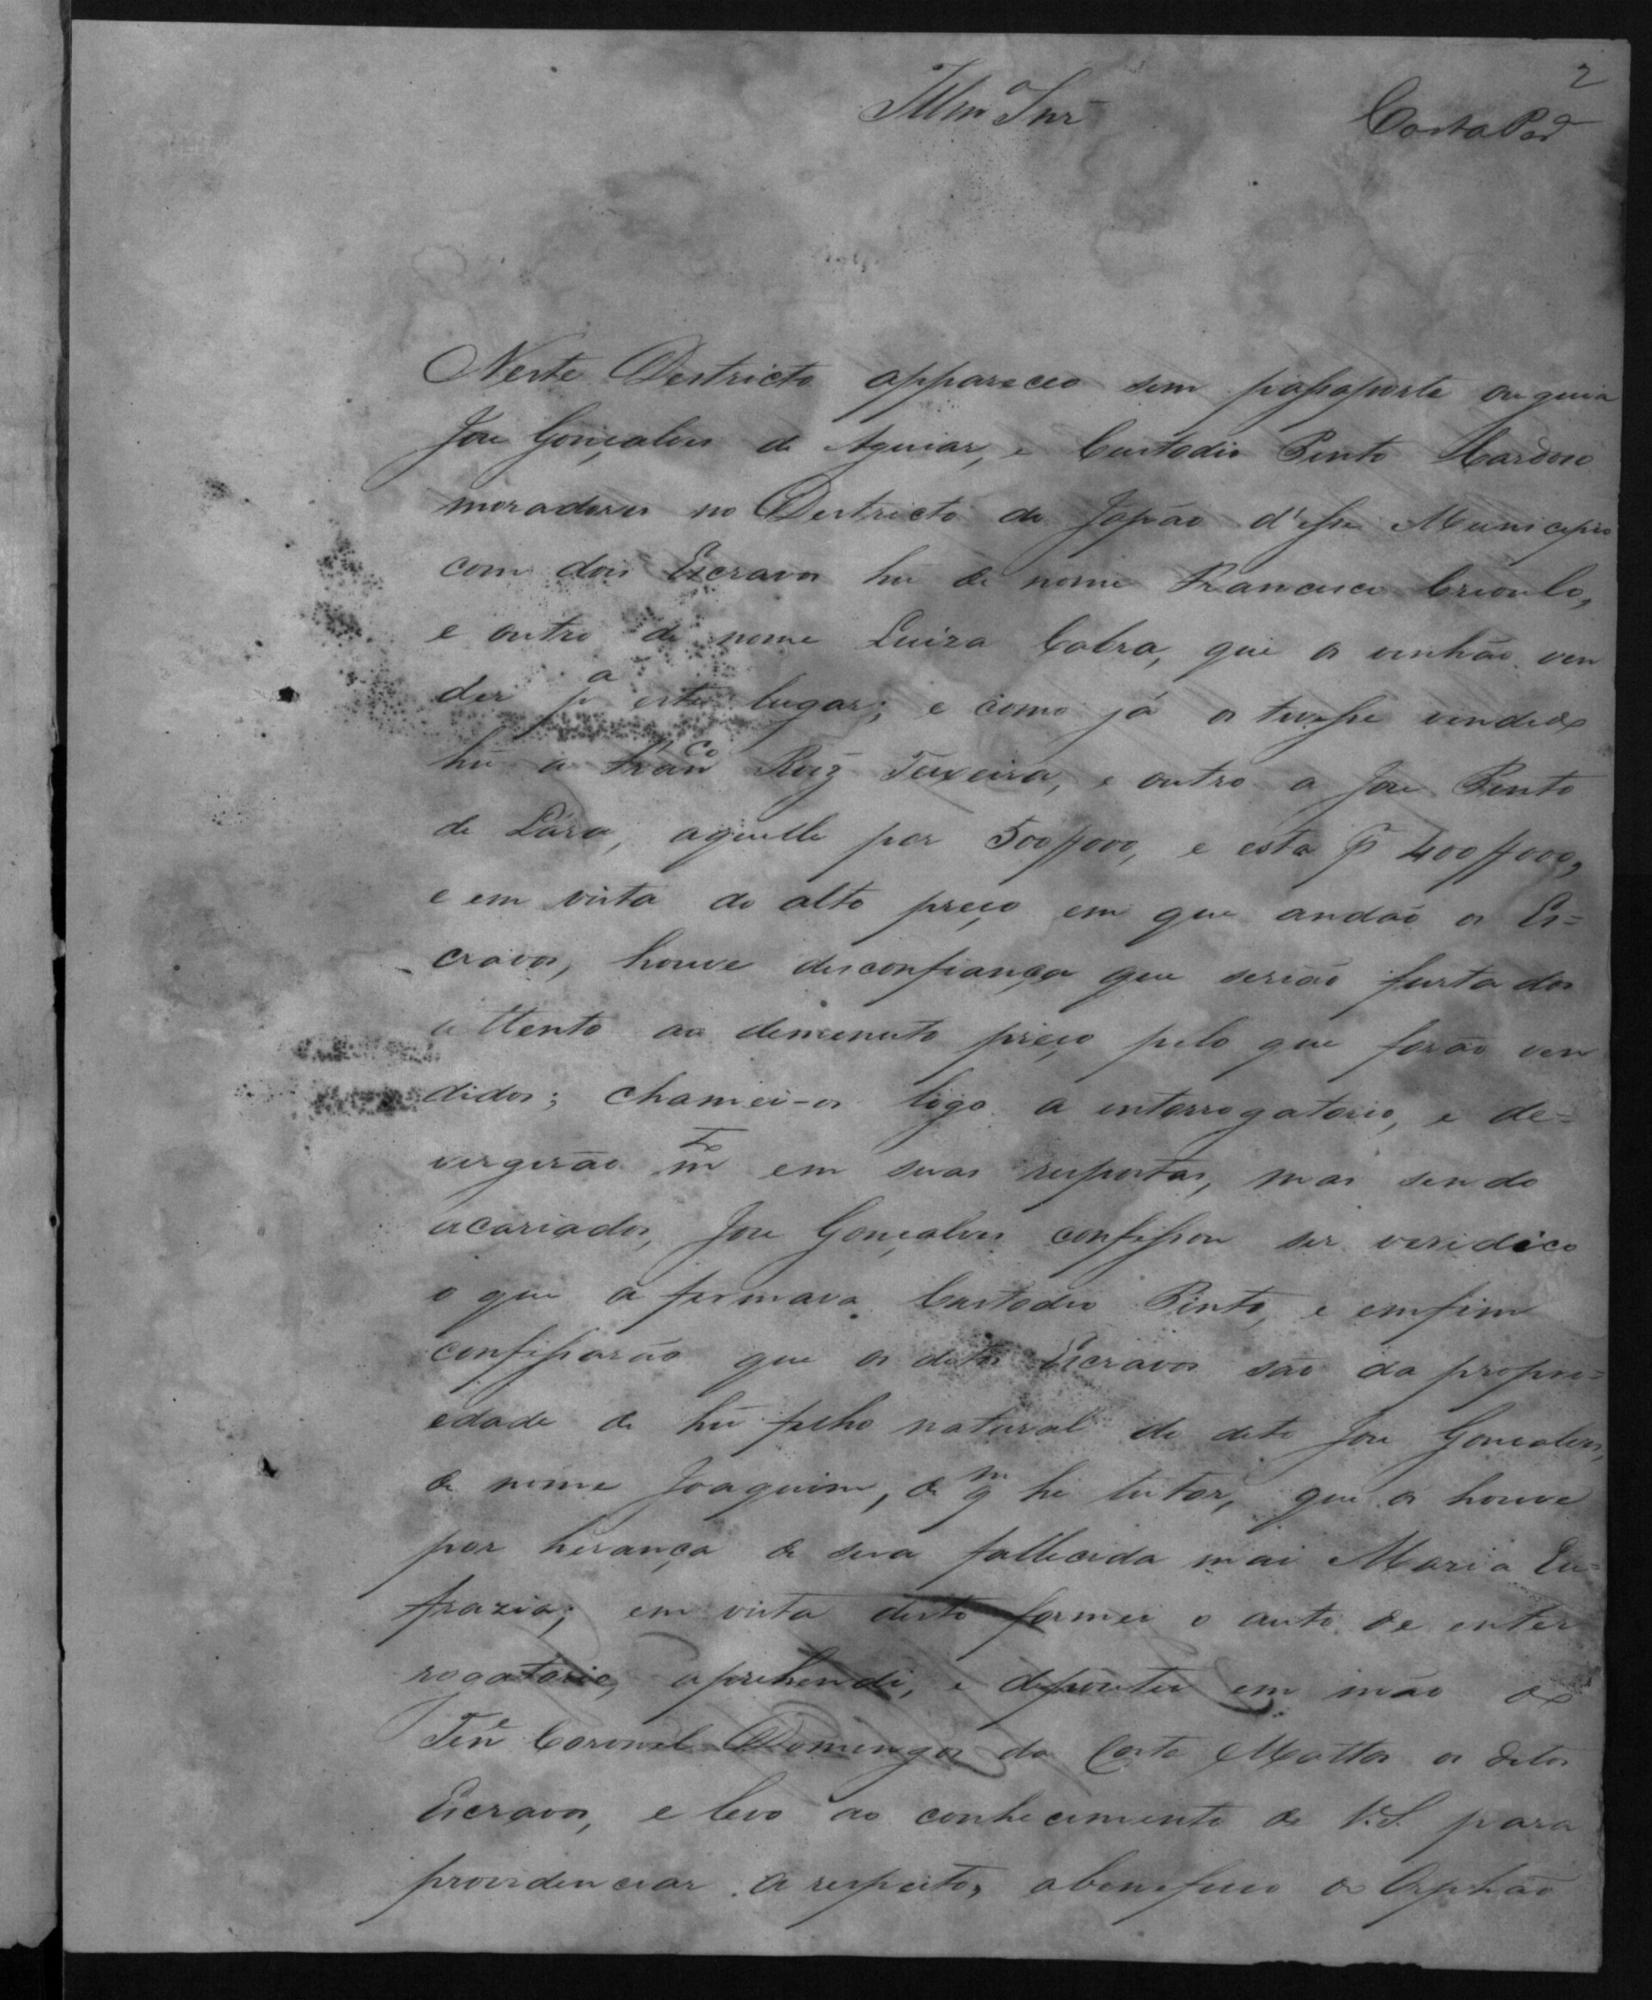 2
Illmº Snr
Costa Porº
Neste Destricto appareceo sem passaporte ou guia
Jose Gonçalves de Aguiar, e Custodio Pinto Cardoso
moradores no Destricto do Japão d'esse Municipio
com dois Escravos hũ de nome Francisco Crioulo,
e outro de nome Luiza Cabra, que os vinhão ven
der pª este lugar; e como já os tivesse vendido
hũ a Franco Roiz Teixeira, e outro a Jose Pinto
de Lara, aquelle por 500$000, e esta p 400$000,
e em vista do alto preço em que andão os Es=
cravos, houve desconfiança que serião furtados
attento ao demenuto preço pelo que forão ven
didos; chamei-os logo a enterrogatorio, e de=
vergirão mto em suas respostas, mas sendo
acariados, Jose Gonçalves confessou ser veridico
o que afirmava Custodio Pinto, e emfim
confessarão que os ditos Escravos são da propri=
edade de hũ filho natural do dito Jose Gonçalves,
de nome Joaquim, de qm he tutor, que os houve
por herança de sua fallecida mai Maria Eu=
frazia; em vista disto formei o auto de enter
rogatorio, aprehendi, e depozitei em mão do
Tene Coronel Domingos da Costa Mattos os ditos
Escravos, e levo ao conhecimento de V.S. para
providenciar a respeito, a beneficio do Orphão